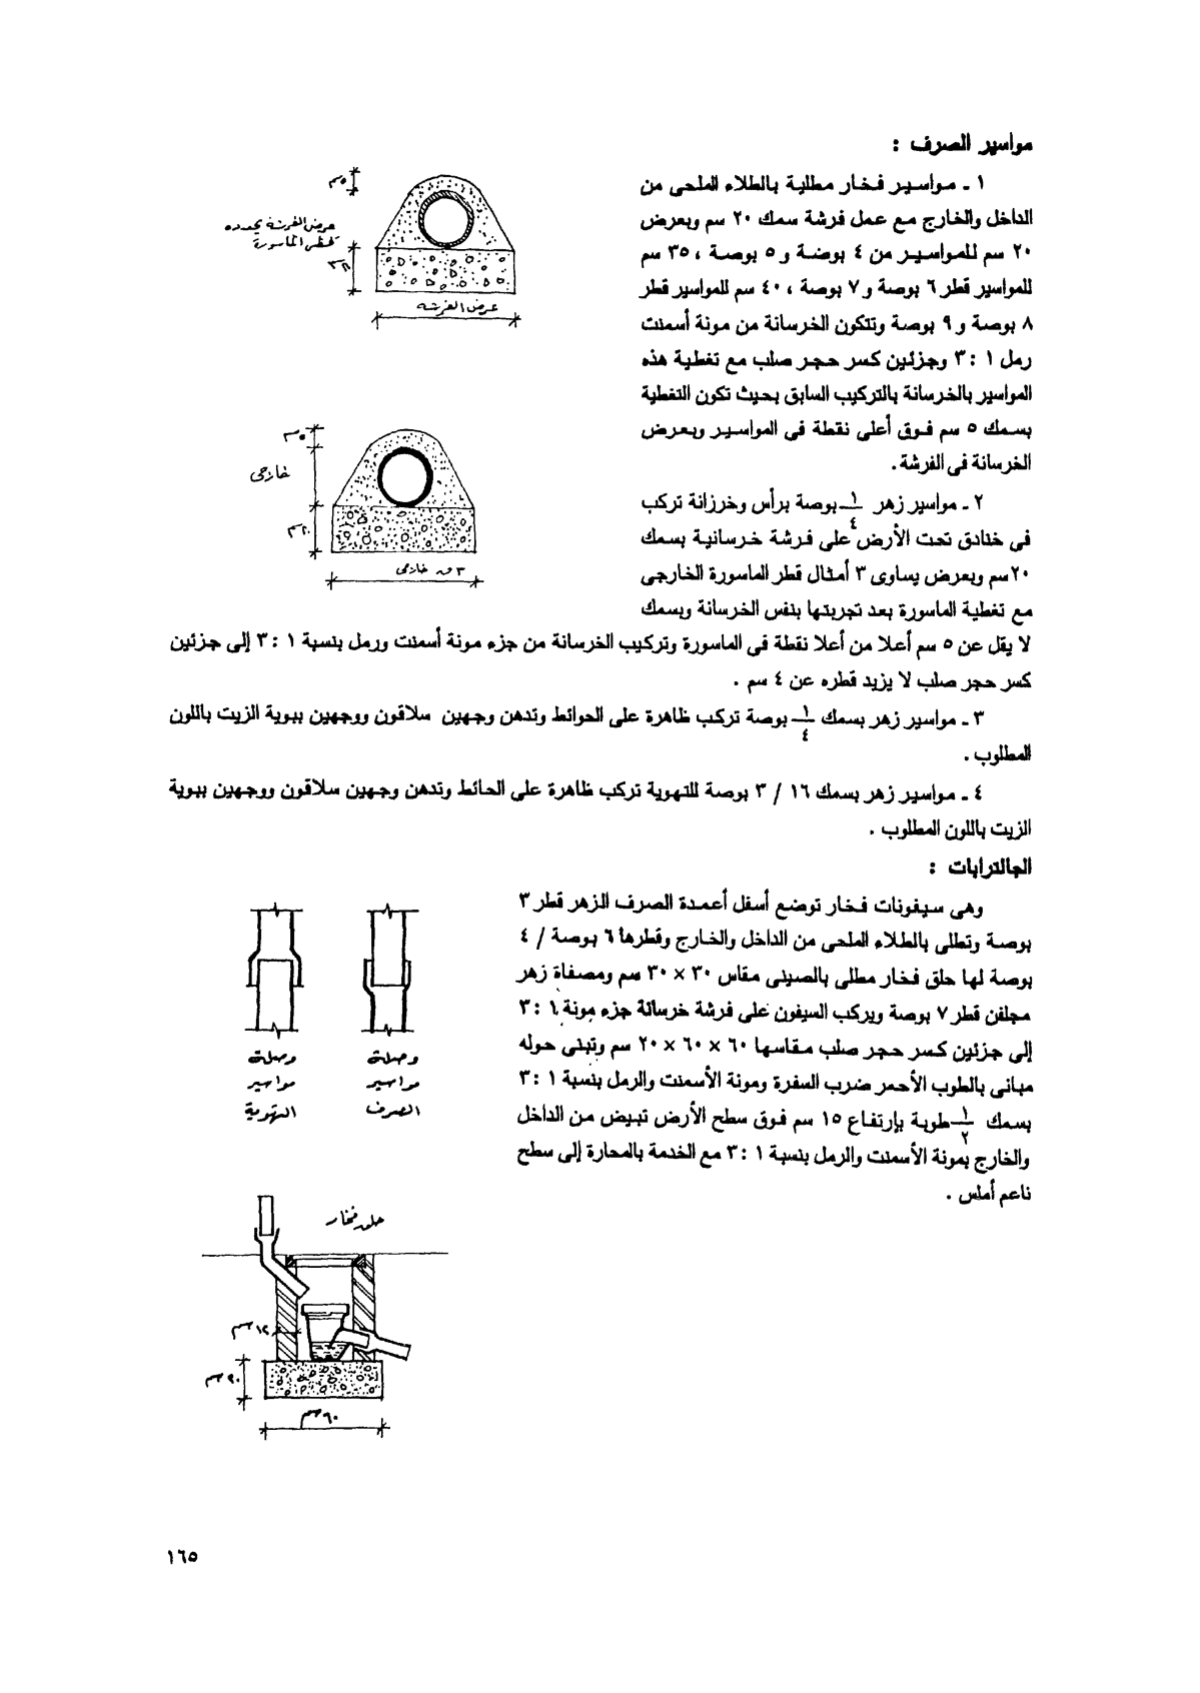 مواسير الصرف :
١ ـ مواسير فخار مطلية بالطلاء الملحى من
الداخل والخارج مع عمل فرشة سمك ٢٠ سم وبعرض
٢٠ سم للمواسير من ٤ بوصة و ٥ بوصة ، ٣٥ سم
للمواسير قطر ٦ بوصة و ٧ بوصة ، ٤٠ سم للمواسير قطر
٨ بوصة و ٩ بوصة وتتكون الخرسانة من مونة أسمنت
رمل ١ : ٣ وجزئين كسر حجر صلب مع تغطية هذه
المواسير بالخرسانة بالتركيب السابق بحيث تكون التغطية
بسمك ٥ سم فوق أعلى نقطة فى المواسير وبعرض
الخرسانة فى الفرشة .
٥سم
عرض الفرشة يحدده
قطر الماسورة
عرض الفرشه
٢ ـ مواسير زهر ١/٤ بوصة برأس وخرزانة تركب
فى خنادق تحت الأرض على فرشة خرسانية بسمك
٢٠سم وبعرض يساوى ٣ أمثال قطر الماسورة الخارجى
مع تغطية الماسورة بعد تجربتها بنفس الخرسانة وبسمك
لا يقل عن ٥ سم أعلا من أعلا نقطة فى الماسورة وتركيب الخرسانة من جزء مونة أسمنت ورمل بنسبة ١ : ٣ إلى جزئين
كسر حجر صلب لا يزيد قطره عن ٤ سم .
٥سم
خارجى
٢٠سم
٣ ق خارجى
٣ ـ مواسير زهر بسمك ١/٤ بوصة تركب ظاهرة على الحوائط وتدهن وجهين سلاقون ووجهين ببوية الزيت باللون
المطلوب .
٤ ـ مواسير زهر بسمك ١٦ / ٣ بوصة للتهوية تركب ظاهرة على الحائط وتدهن وجهين سلاقون ووجهين ببوية
الزيت باللون المطلوب .
الجالترابات :
وهى سيفونات فخار توضع أسفل أعمدة الصرف الزهر قطر ٣
بوصة وتطلى بالطلاء الملحى من الداخل والخارج وقطرها ٦ بوصة / ٤
بوصة لها حلق فخار مطلى بالصينى مقاس ٣٠ × ٣٠ سم ومصفاة زهر
مجلفن قطر ٧ بوصة ويركب السيفون على فرشة خرسانة جزء مونة ١ : ٣
إلى جزئين كسر حجر صلب مقاسها ٦٠ × ٦٠ × ٢٠ سم وتبنى حوله
مبانى بالطوب الأحمر ضرب السفرة ومونة الأسمنت والرمل بنسبة ١ : ٣
بسمك ١/٢ طوبة بإرتفاع ١٥ سم فوق سطح الأرض تبيض من الداخل
والخارج بمونة الأسمنت والرمل بنسبة ١ : ٣ مع الخدمة بالمحارة إلى سطح
ناعم أملس .
وصلة
مواسير
الصرف
وصلة
مواسير
التهوية
حلق فخار
١٢سم
٦٠سم
١٦٥